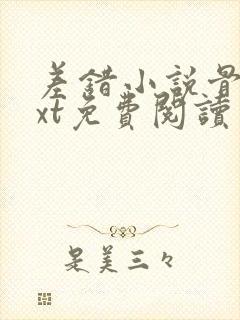 差錯小説最
xt免費閱讀
是美三々